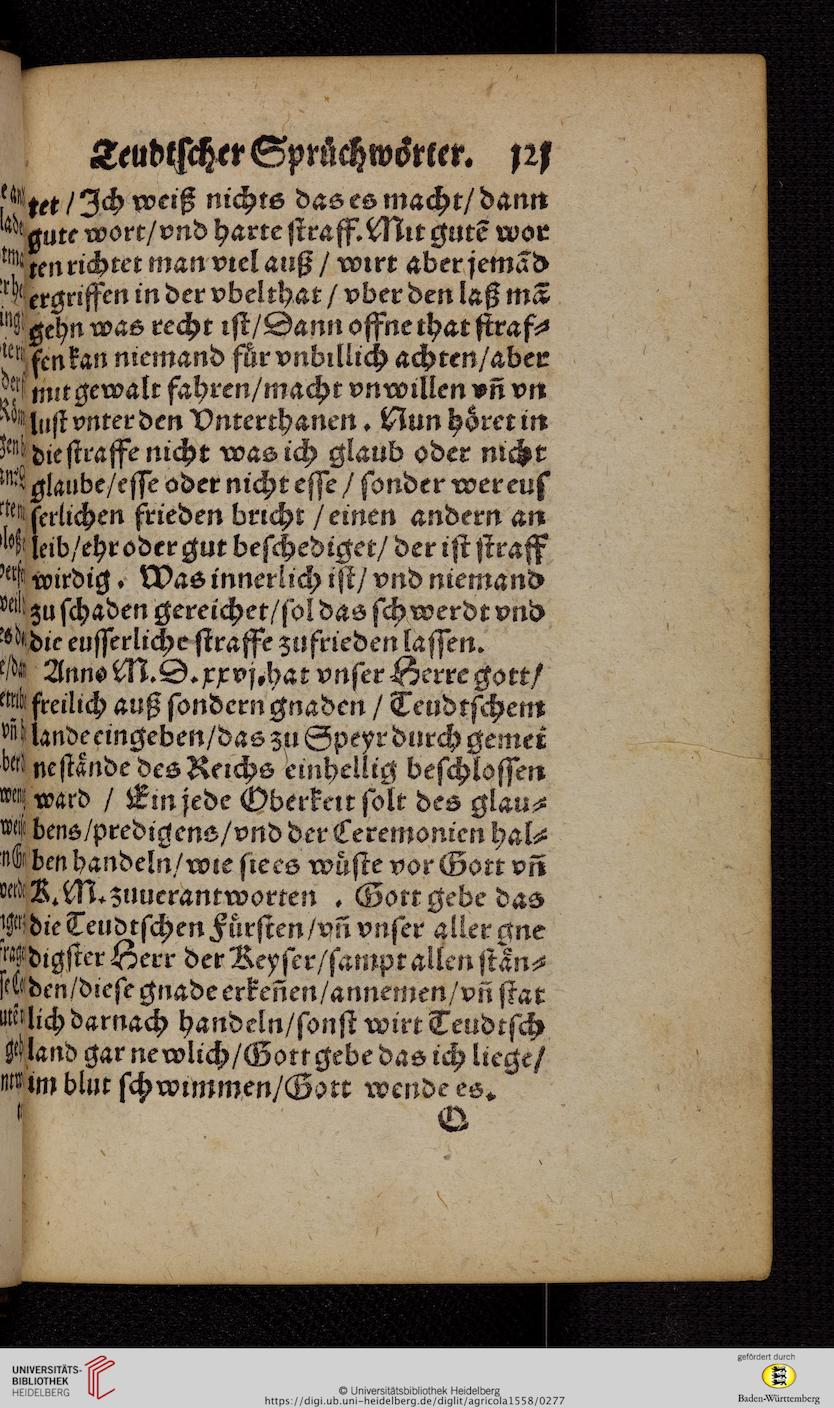 Teudtscher Sprüchwörter. 121
tet / Ich weiß nichts das es macht / dann
gute wort / vnd harte straff. Mit gutē wor
ten richtet man viel auß / wirt aber jemād
ergriffen in der vbelthat / vber den laß mā
gehn was recht ist / Dann offne that straf⸗
fen kan niemand für vnbillich achten / aber
mit gewalt fahren / macht vnwillen vn̄ vn
lust vnter den Vnterthanen. Nun höret in
die straffe nicht was ich glaub oder nicht
glaube / esse oder nicht esse / sonder wer eus
serlichen frieden bricht / einen andern an
leib / ehr oder gut beschediget / der ist straff
wirdig. Was innerlich ist / vnd niemand
zu schaden gereichet / sol das schwerdt vnd
die eusserliche straffe zufrieden lassen.
Anno M.D.xxvj. hat vnser Herre gott /
freilich auß sondern gnaden / Teudtschem
lande eingeben / das zu Speyr durch gemei
ne stände des Reichs einhellig beschlossen
ward / Ein jede Oberkeit solt des glau⸗
bens / predigens / vnd der Ceremonien hal⸗
ben handeln / wie sie es wüste vor Gott vn̄
K.M. zuuerantworten . Gott gebe das
die Teudtschen Fürsten / vn̄ vnser aller gne
digster Herr der Keyser / sampt allen stän⸗
den / diese gnade erkeñen / annemen / vn̄ stat
lich darnach handeln / sonst wirt Teudtsch
land gar newlich / Gott gebe das ich liege /
im blut schwimmen / Gott wende es.
Q
UNIVERSITÄTS-
BIBLIOTHEK
HEIDELBERG
© Universitätsbibliothek Heidelberg
https://digi.ub.uni-heidelberg.de/diglit/agricola1558/0277
gefördert durch
Baden-Württemberg